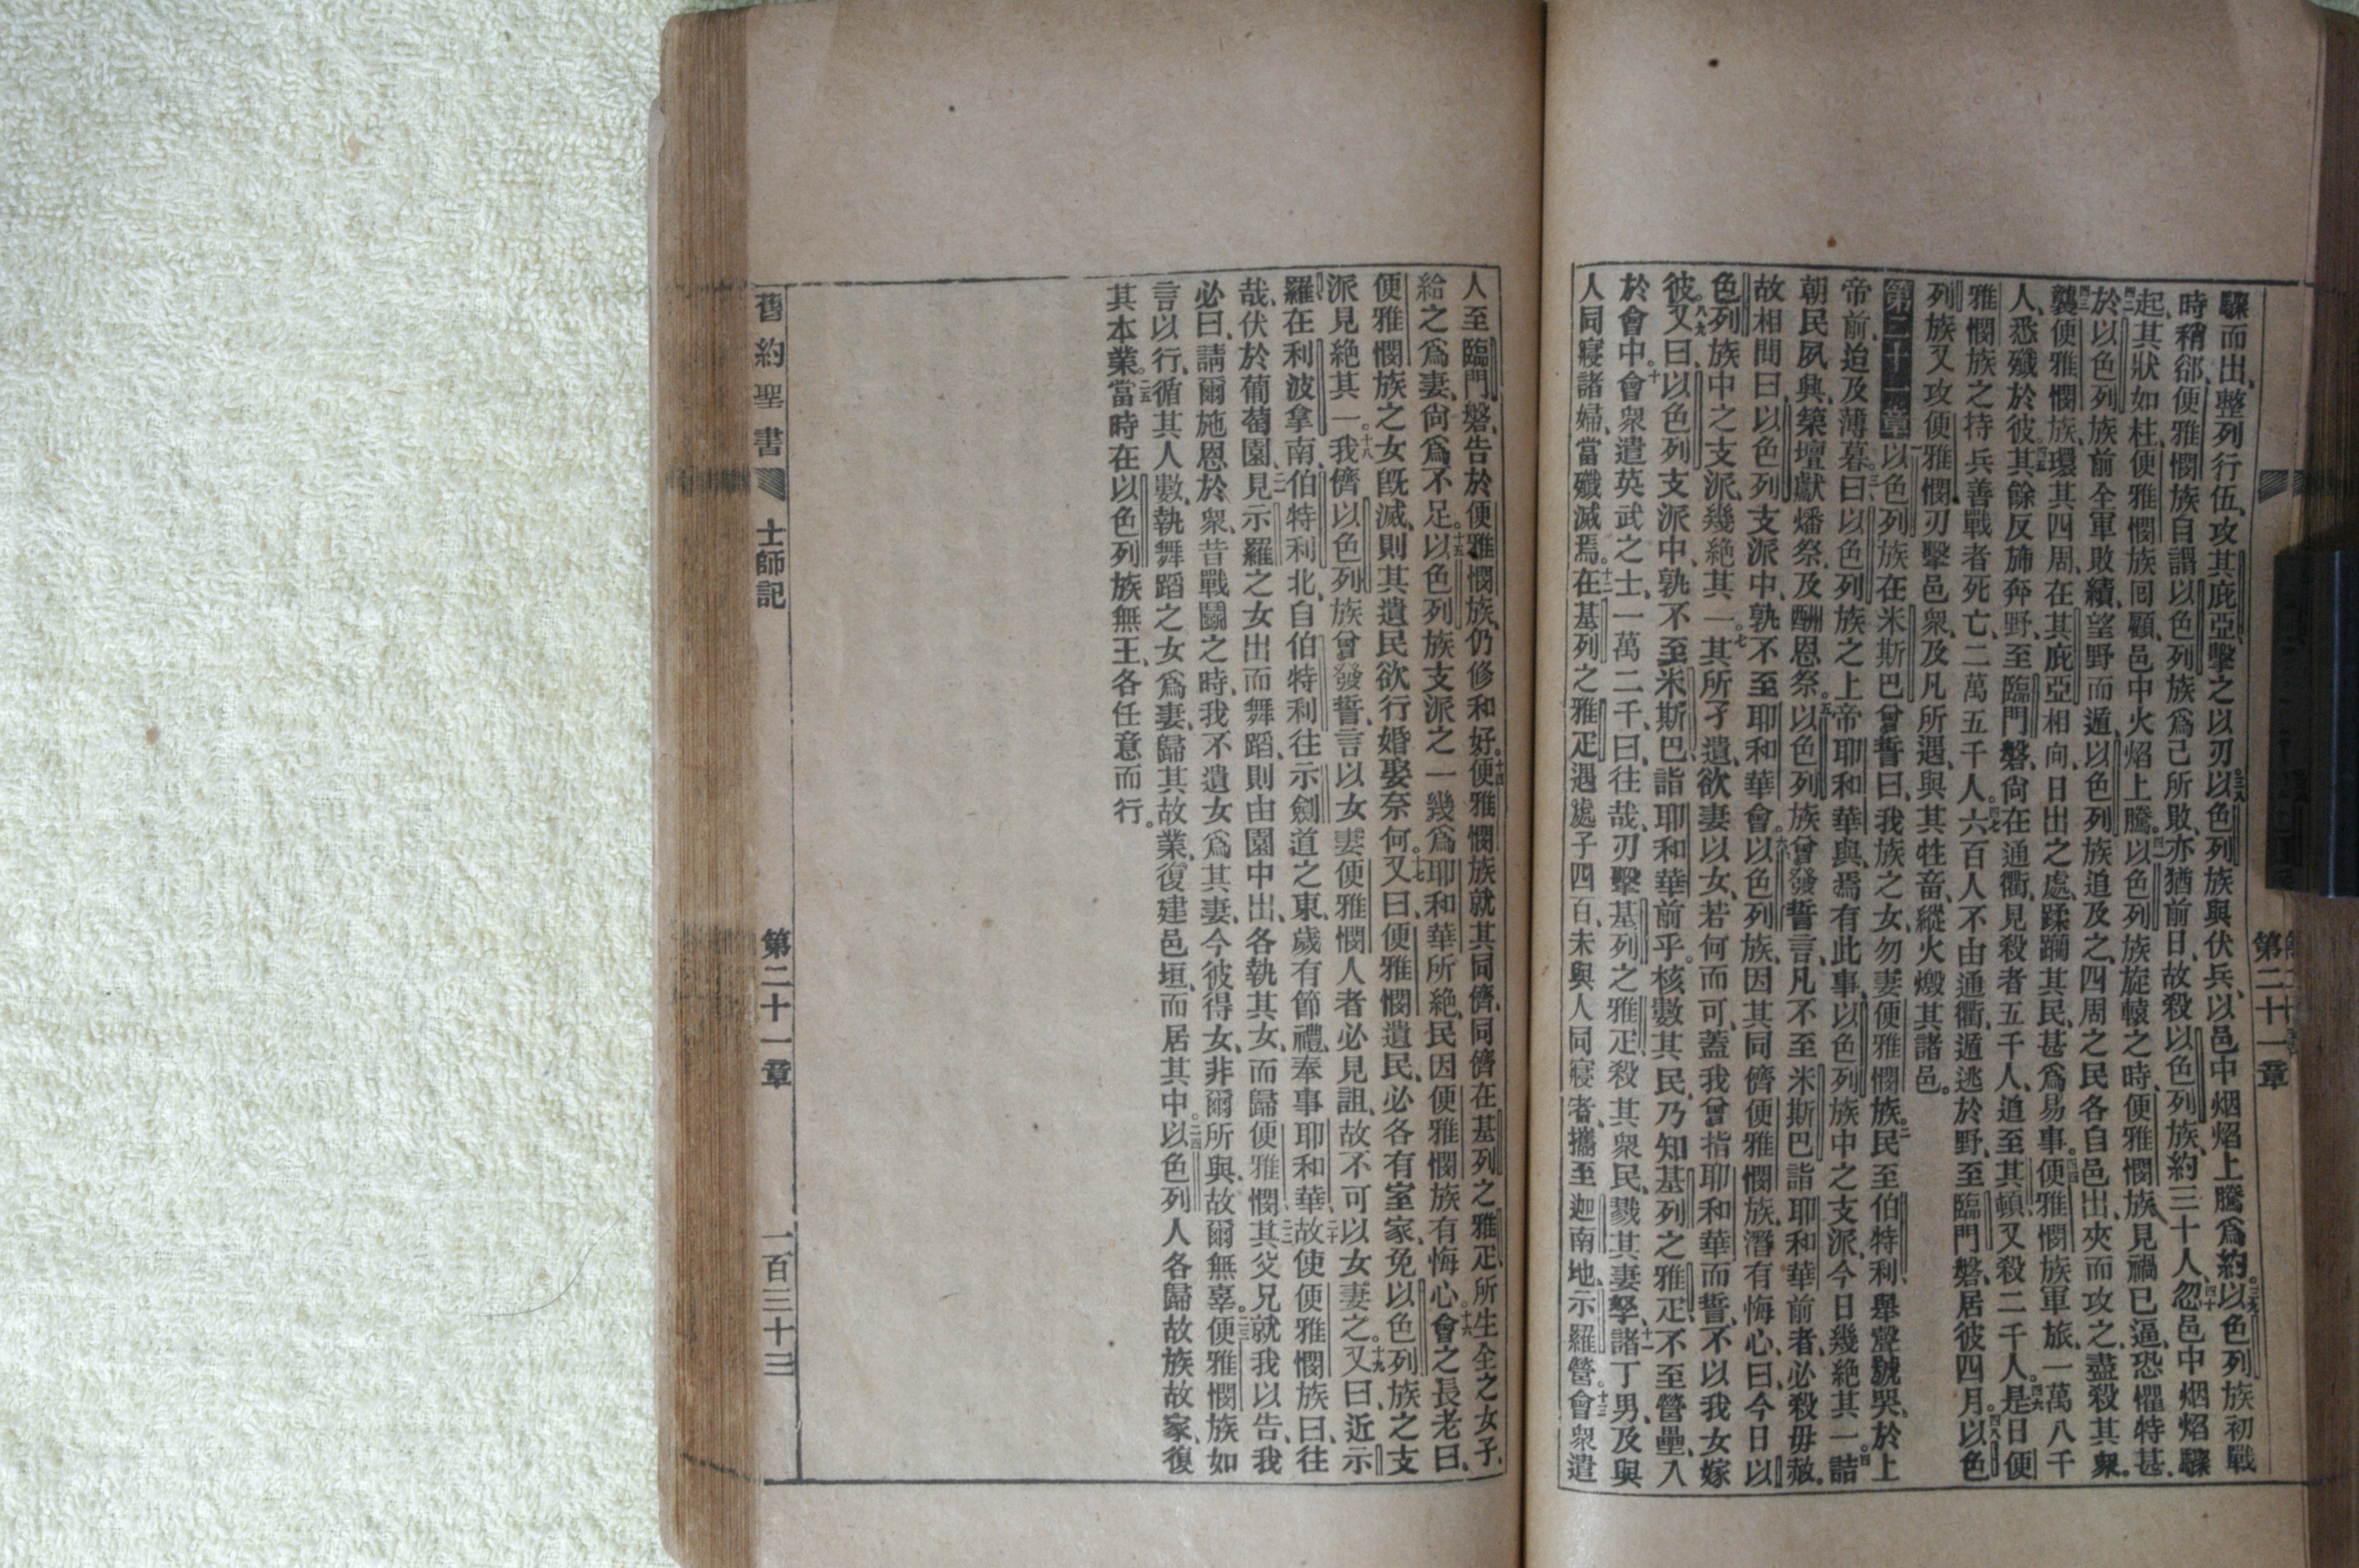 驟而出、整列行伍、攻其庇亞、擊之以刃、三八以色列族與伏兵、以邑中烟焰上騰爲約。三九以色列族初戰
時稍郤、便雅憫族自謂以色列族爲己所敗、亦猶前日、故殺以色列族、約三十人、四十忽邑中烟焰驟
起、四一其狀如柱、便雅憫族囘顧、邑中火焰上騰。四一以色列族旋轅之時、便雅憫族見禍已逼、恐懼特甚。
四二於以色列族前全軍敗績、望野而遁、以色列族追及之、四周之民各自邑出、夾而攻之、盡殺其衆。
四三襲便雅憫族、環其四周、在其庇亞相向、日出之處、蹂躪其民、甚爲易事。四四便雅憫族軍旅、一萬八千
人、悉殲於彼。四五其餘反斾奔野、至臨門磐、尙在通衢、見殺者五千人、追至其頓、又殺二千人。四六是日便
雅憫族之持兵善戰者死亡、二萬五千人。四七六百人不由通衢、遁逃於野、至臨門磐、居彼四月。四八以色
列族又攻便雅憫、刃擊邑衆、及凡所遇、與其牲畜、縱火燬其諸邑。
第二十一章 一以色列族在米斯巴曾誓曰、我族之女、勿妻便雅憫族。二民至伯特利、舉聲號哭、於上
帝前、迨及薄暮。三曰、以色列族之上帝耶和華與、焉有此事、以色列族中之支派、今日幾絶其一。四詰
朝民夙興、築壇獻燔祭、及酬恩祭。五以色列族曾發誓言、凡不至米斯巴詣耶和華前者、必殺毋赦。
故相問曰、以色列支派中、孰不至耶和華會。六以色列族、因其同儕便雅憫族、潛有悔心、曰、今日以
色列族中之支派、幾絶其一。七其所孑遺、欲妻以女、若何而可、蓋我曾指耶和華而誓、不以我女嫁
彼。八九又曰、以色列支派中、孰不至米斯巴、詣耶和華前乎。核數其民、乃知基列之雅疋、不至營壘、入
於會中。十會衆遣英武之士、一萬二千、曰、往哉、刃擊基列之雅疋、殺其衆民、戮其妻孥、十一諸丁男、及與
人同寢諸婦、當殲滅焉。十二在基列之雅疋遇處子四百、未與人同寢者、攜至迦南地、示羅營。十三會衆遣
人至臨門磐、告於便雅憫族、仍修和好。十四便雅憫族就其同儕、同儕在基列之雅疋、所生全之女子、
給之爲妻、尙爲不足。十五以色列族支派之一、幾爲耶和華所絶、民因便雅憫族有悔心。十六會之長老曰、
便雅憫族之女旣滅、則其遺民欲行婚娶奈何。十七又曰、便雅憫遺民、必各有室家、免以色列族之支
派見絶其一。十八我儕以色列族曾發誓言、以女妻便雅憫人者必見詛、故不可以女妻之。十九又曰、近示
羅在利波拿南、伯特利北、自伯特利往示劍道之東、歲有節禮、奉事耶和華、二十故使便雅憫族曰、往
哉、伏於葡萄園、二一見示羅之女出而舞蹈、則由園中出、各執其女、而歸便雅憫、二二其父兄就我以告、我
必曰、請爾施恩於衆、昔戰鬭之時、我不遺女爲其妻、今彼得女、非爾所與、故爾無辜。二三便雅憫族如
言以行、循其人數、執舞蹈之女爲妻、歸其故業、復建邑垣、而居其中。二四以色列人各歸故族故家、復
其本業。二五當時在以色列族無王、各任意而行。
舊約聖書 士師記 第二十一章 一百三十三
第二十一章